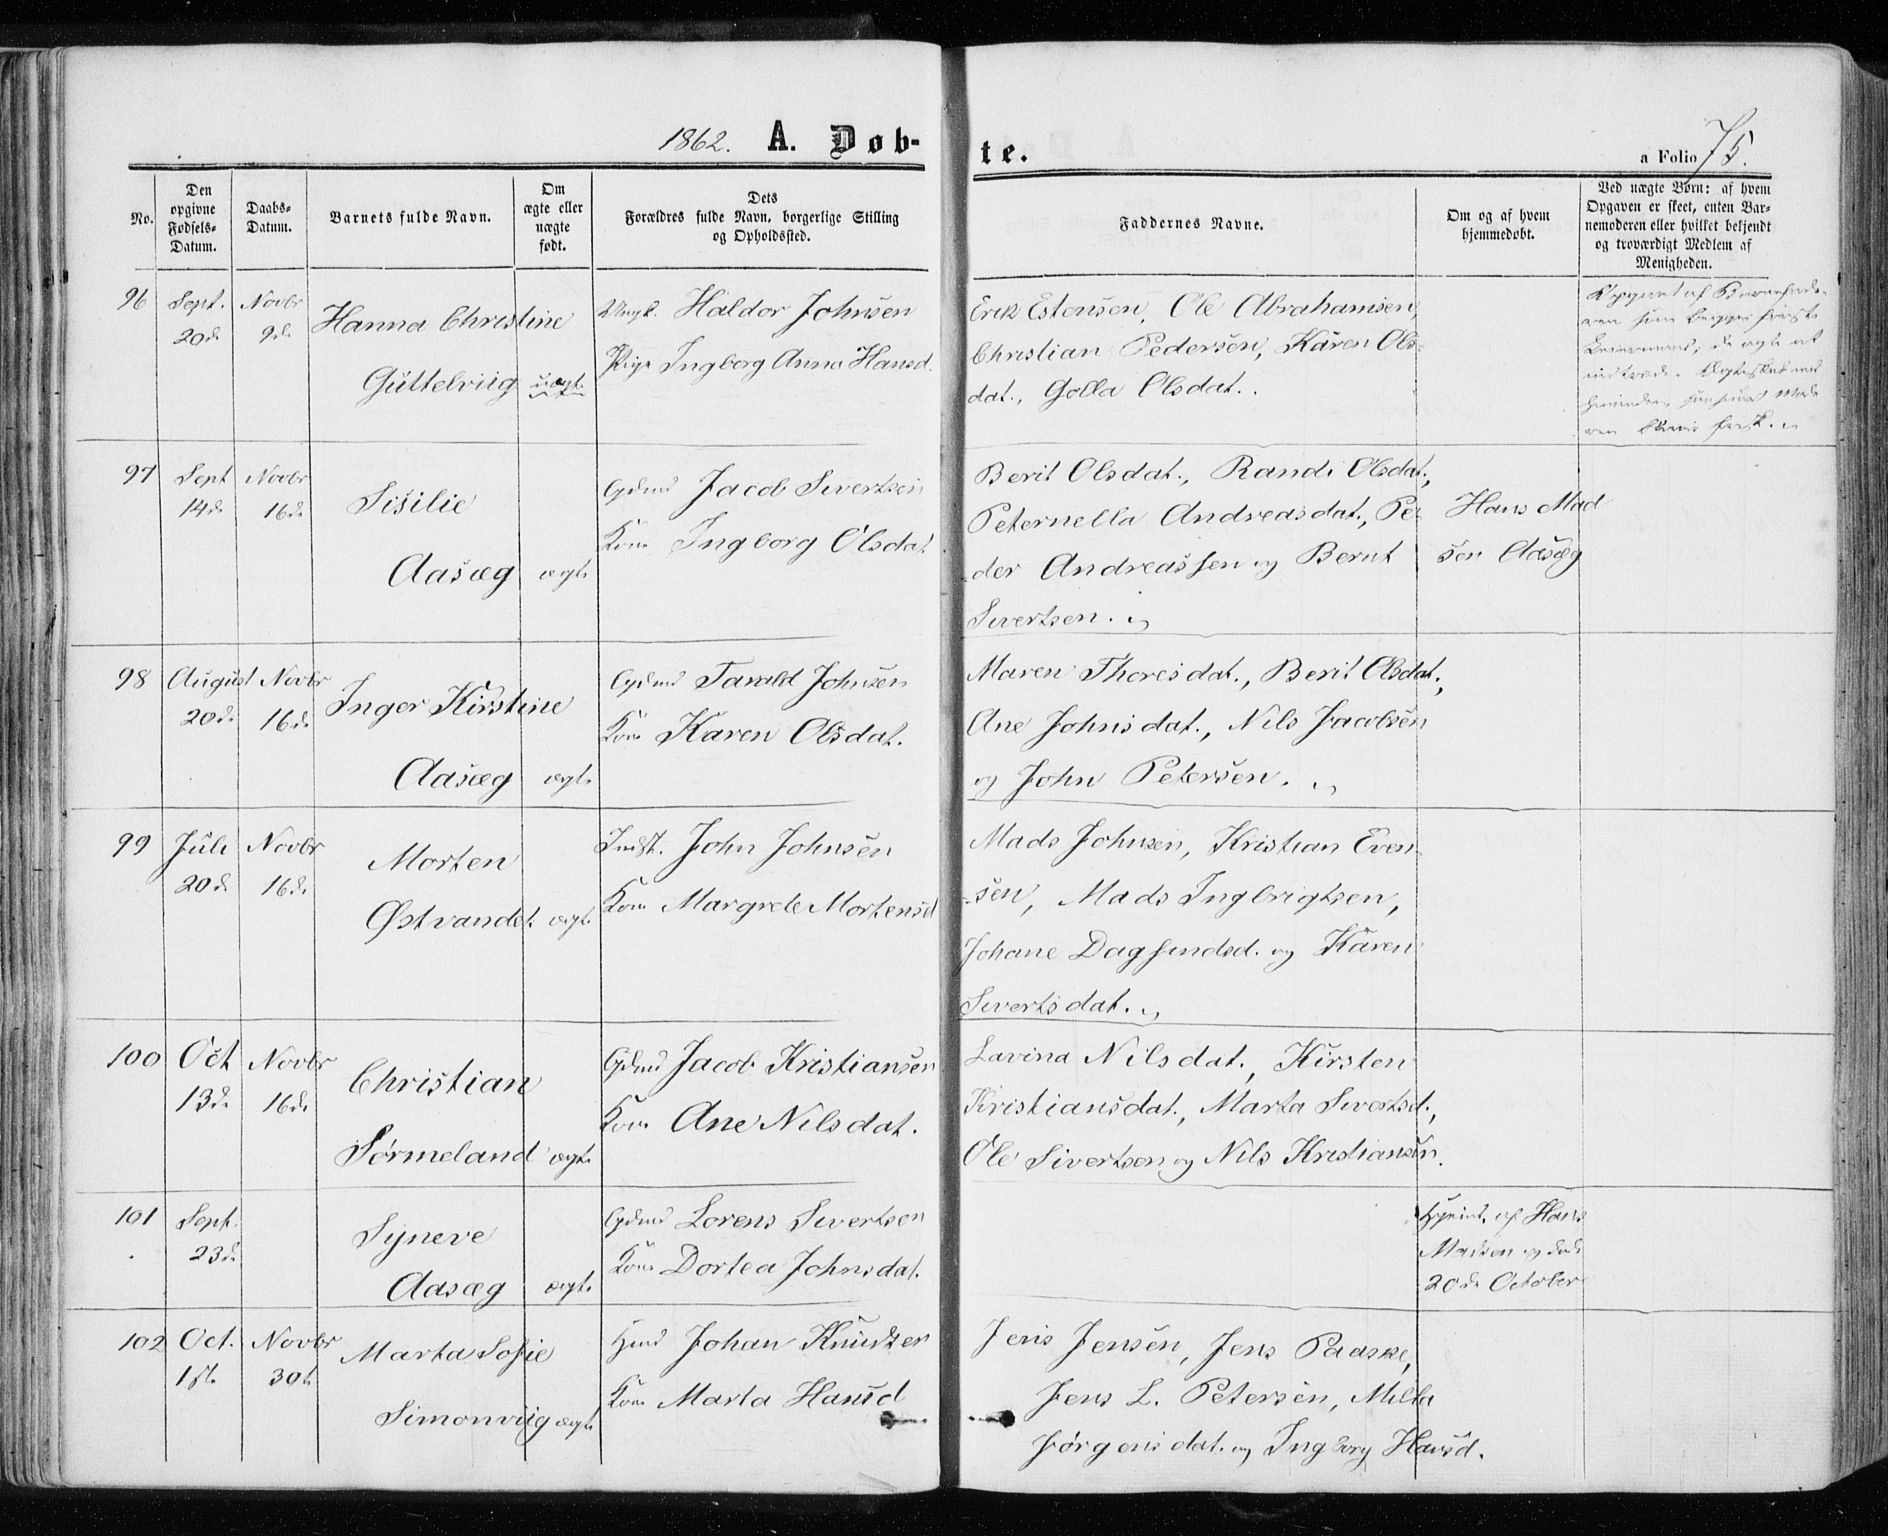 1862. A. Døb-
te.
a Folio 75.
No.
Den opgivne Fødsels-Datum.
Daabs-Datum.
Barnets fulde Navn.
Om ægte eller uægte født.
Dets Forældres fulde Navn, borgerlige Stilling og Opholdssted.
Faddernes Navne.
Om og af hvem hjemmedøbt.
Ved uægte Børn: af hvem Opgaven er skeet, enten Barnemoderen eller hvilket bekjendt og troværdigt Medlem af Menigheden.
96 Sept. 20d. Novbr 9d.
Hanna Christine
Güttelviig uægt.
Ungk. Haldor Johnsen
Pige Ingborg Anna Hansd.
Erik Estensen, Ole Abrahamsen,
Christian Pedersen, Karen Ols-
dat., Golla Olsdat.
97 Sept 14d. Novbr 16d.
Sisilie
Aasæg ægt.
Gdmd Jacob Sivertsen
Kone Ingborg Olsdat.
Berit Olsdat., Randi Olsdat.,
Peternella Andreasdat., Pe-
der Andreassen og Bernt
Sivertsen.
Hans Mad
sen Aasæg
98 August 20d. Novbr 16d.
Inger Kirstine
Aasæg ægt.
Gdmd Tarald Johnsen
Kone Karen Olsdat.
Maren Thoresdat., Berit Olsdat.,
Ane Johnsdat., Nils Jacobsen
og John Petersen.
99 Juli 20d. Novbr 16d.
Morten
Østvandet. ægt.
Indst. John Johnsen
Kone Margrete Mortensd
Mads Johnsen, Kristian Even-
sen, Mads Ingbrigtsen,
Johane Dagfindsd. og Karen
Sivertsdat.
100 Oct 13d. Novbr 16d.
Christian
Sørmeland ægt.
Gdmd Jacob Kristiansen
Kone Ane Nilsdat.
Lavina Nilsdat., Kirsten
Kristiansdat., Marta Sivertsd.,
Ole Sivertsen og Nils Kristiansen.
101 Sept. 23d.
Syneve
Aasæg ægt.
Gdmd Lorens Sivertsen
Kone Dortea Johnsdat.
af Hans
Madsen og døde
20d. October
102 Oct. 1st. Novbr 30t.
Marta Sofie
Simonviig ægt.
Johan Knudzen
Kone Marta Hansd
Jens Jensen, Jens Paaske,
Jens L. Petersen, Milla
Jørgensdat. og Ingborg Hansd.